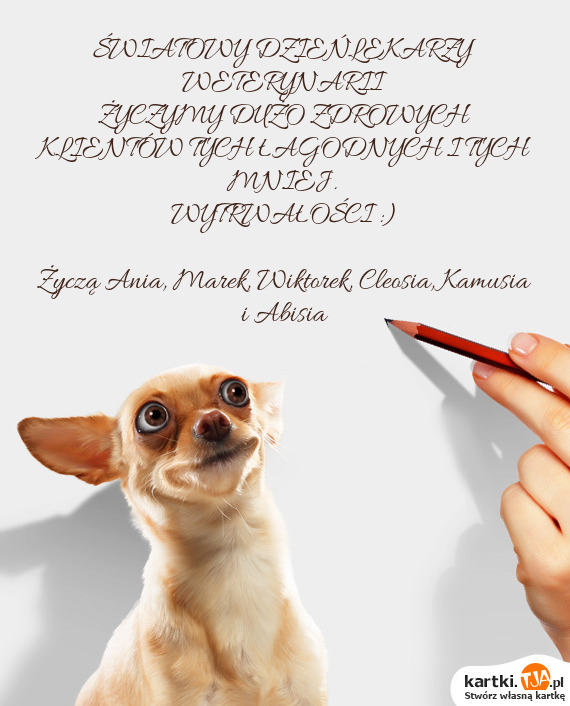 ŚWIATOWY DZIEŃ LEKARZY
WETERYNARII
ŻYCZYMY DUŻO ZDROWYCH
KLIENTÓW TYCH ŁAGODNYCH I TYCH
MNIEJ .
WYTRWAŁOŚCI :)
Życzą Ania, Marek, Wiktorek, Cleosia, Kamusia
i Abisia
kartki.TJA.pl
Stwórz własną kartkę